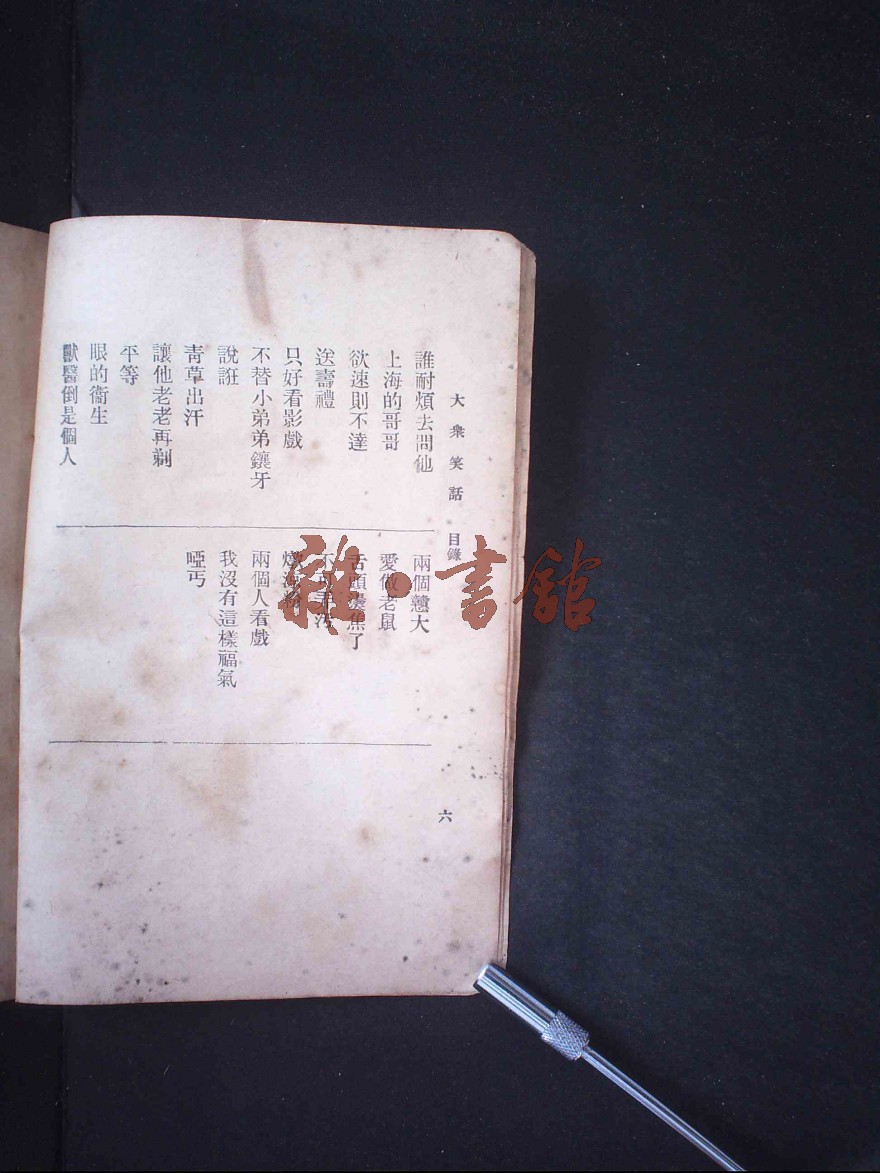 大衆笑話 目錄
六
誰耐煩去問他
上海的哥哥
欲速則不達
送壽禮
只好看影戲
不替小弟弟鑲牙
說誑
靑草出汗
讓他老老再剃
平等
眼的衞生
獸醫倒是個人
兩個戇大
愛做老鼠
舌頭燙焦了
不可
兩個人看戲
我沒有這樣福氣
啞丐
雜·書館